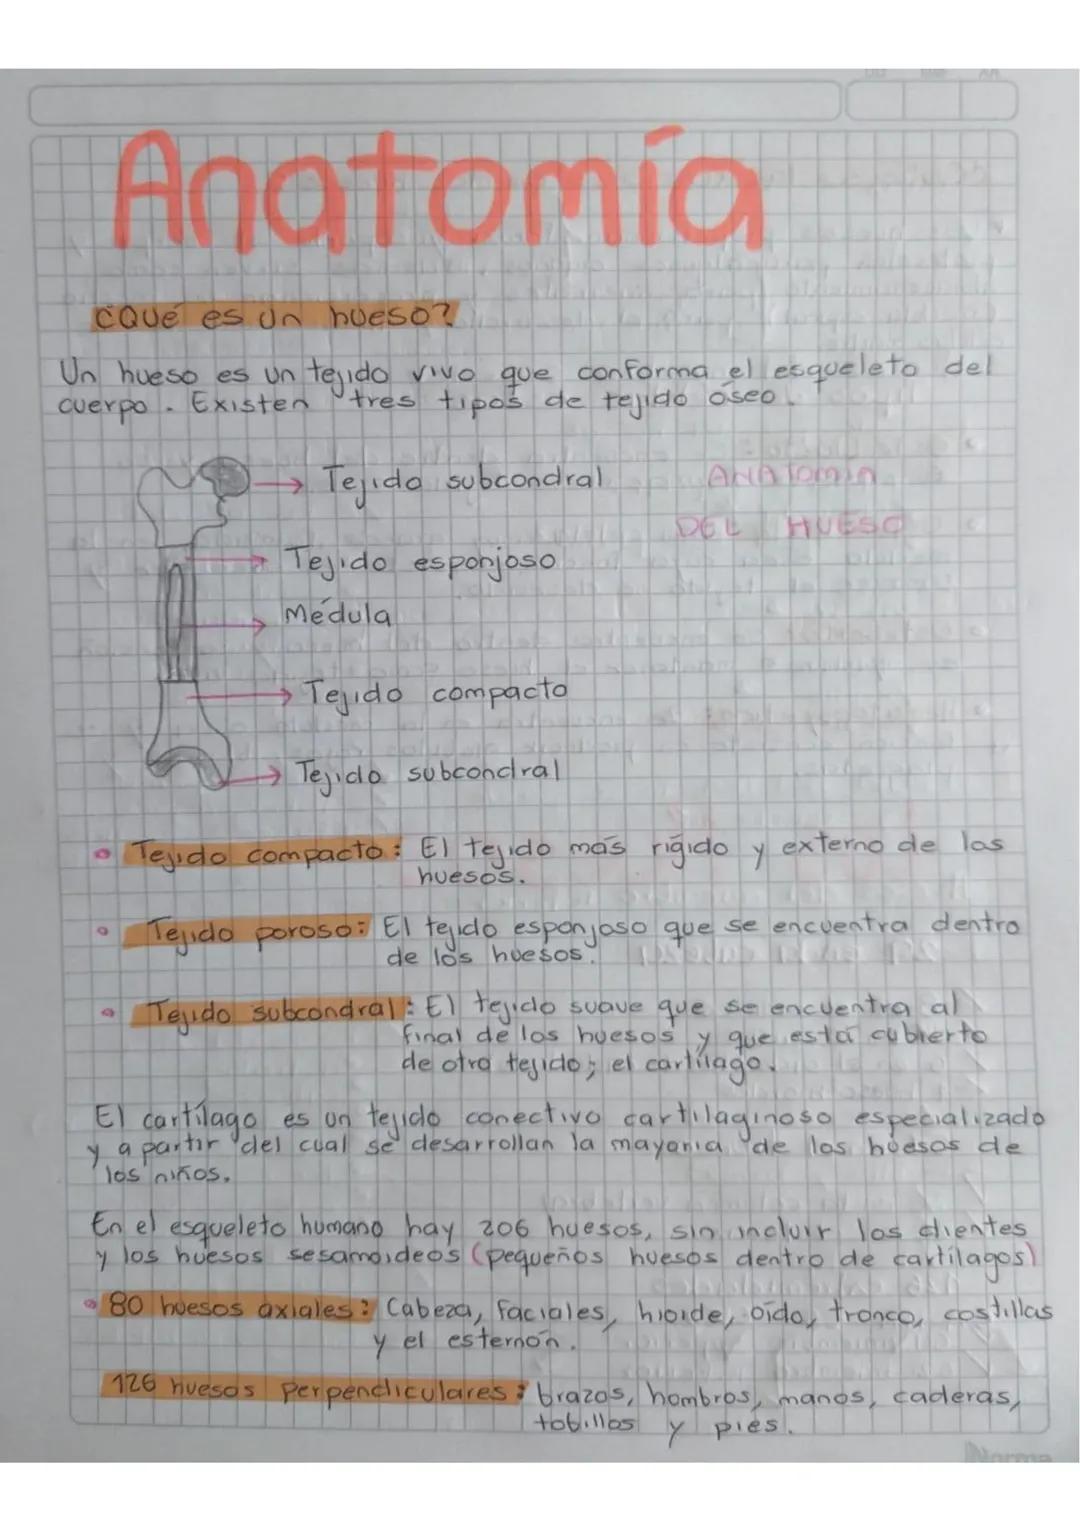 Anatomía
¿Qué es un hueso?
Un hueso es un tejido vivo que conforma el esqueleto del
cuerpo. Existen tres tipos de tejido óseo.
Tejido subcondral
ANATOMIA
DEL HUESO
Tejido esponjoso
Médula
Tejido compacto
Tejido subcondral
Tejido compacto: El tejido más rígido y externo de los
huesos.
Tejido poroso: El tejido esponjoso que se encuentra dentro
de los huesos.
Tejido subcondral: El tejido suave que se encuentra al
final de los huesos y que está cubierto
de otro tejido; el cartílago.
El cartílago es un tejido conectivo cartilaginoso especializado
y a partir del cual se desarrollan la mayoria de los huesos de
los niños.
En el esqueleto humano hay 206 huesos, sin incluir los dientes
y los huesos sesamoideos (pequeños huesos dentro de cartílagos)
80 huesos axiales: Cabeza, faciales, hioide, oído, tronco, costillas
y el esternón.
126 huesos perpendiculares: brazos, hombros, manos, caderas,
tobillos y pies.